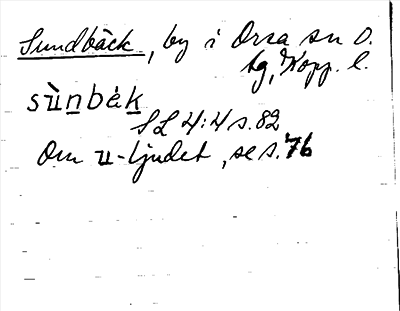 Sundbäck, by i Orsa sn O.
tg, Kopp. l.
sùn̲bàk̲
SL 4:4 s. 82
Om u-ljudet, se s. 76